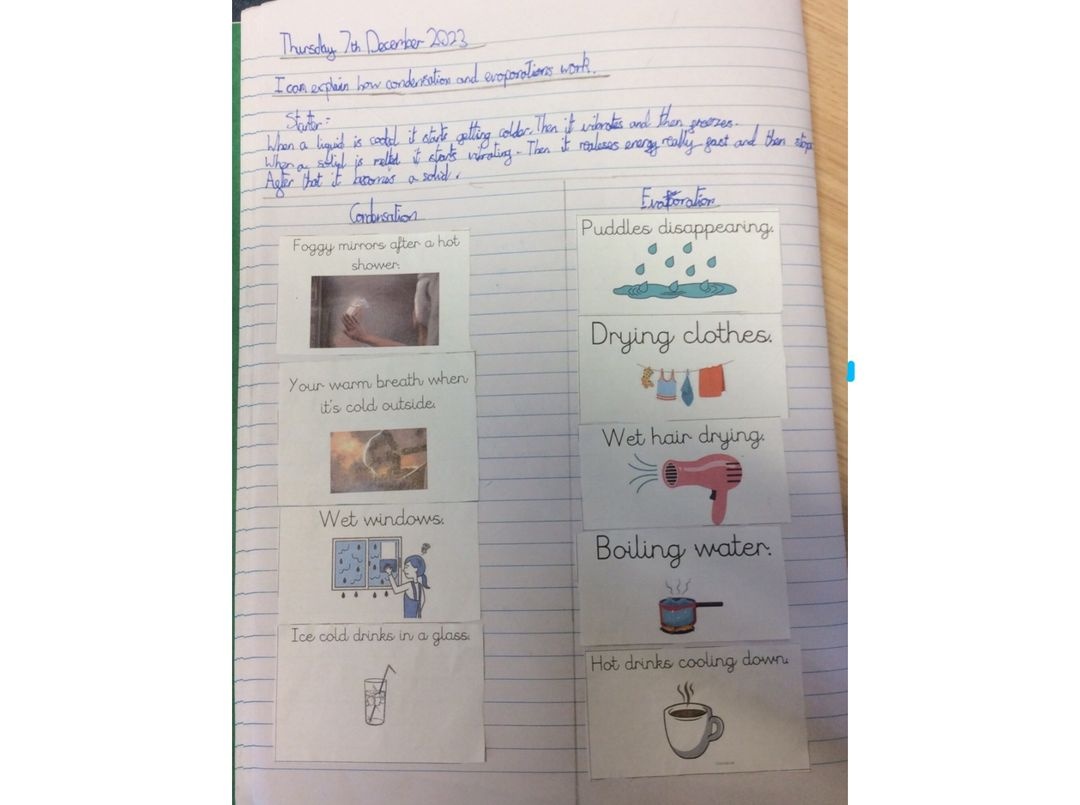 Thursday 7th December 2023
I can explain how condensation and evaporations work.
Starter:-
When a liquid is cooled it starts getting colder. Then it vibrates and then freezes.
When a solid is melted it starts vibrating. Then it realeses energy really fast and then stops
After that it becomes a solid.
Condensation
Foggy mirrors after a hot
shower.
Your warm breath when
it's cold outside.
Wet windows.
Ice cold drinks in a glass.
Evaporation
Puddles disappearing.
Drying clothes.
Wet hair drying.
Boiling water.
Hot drinks cooling down.